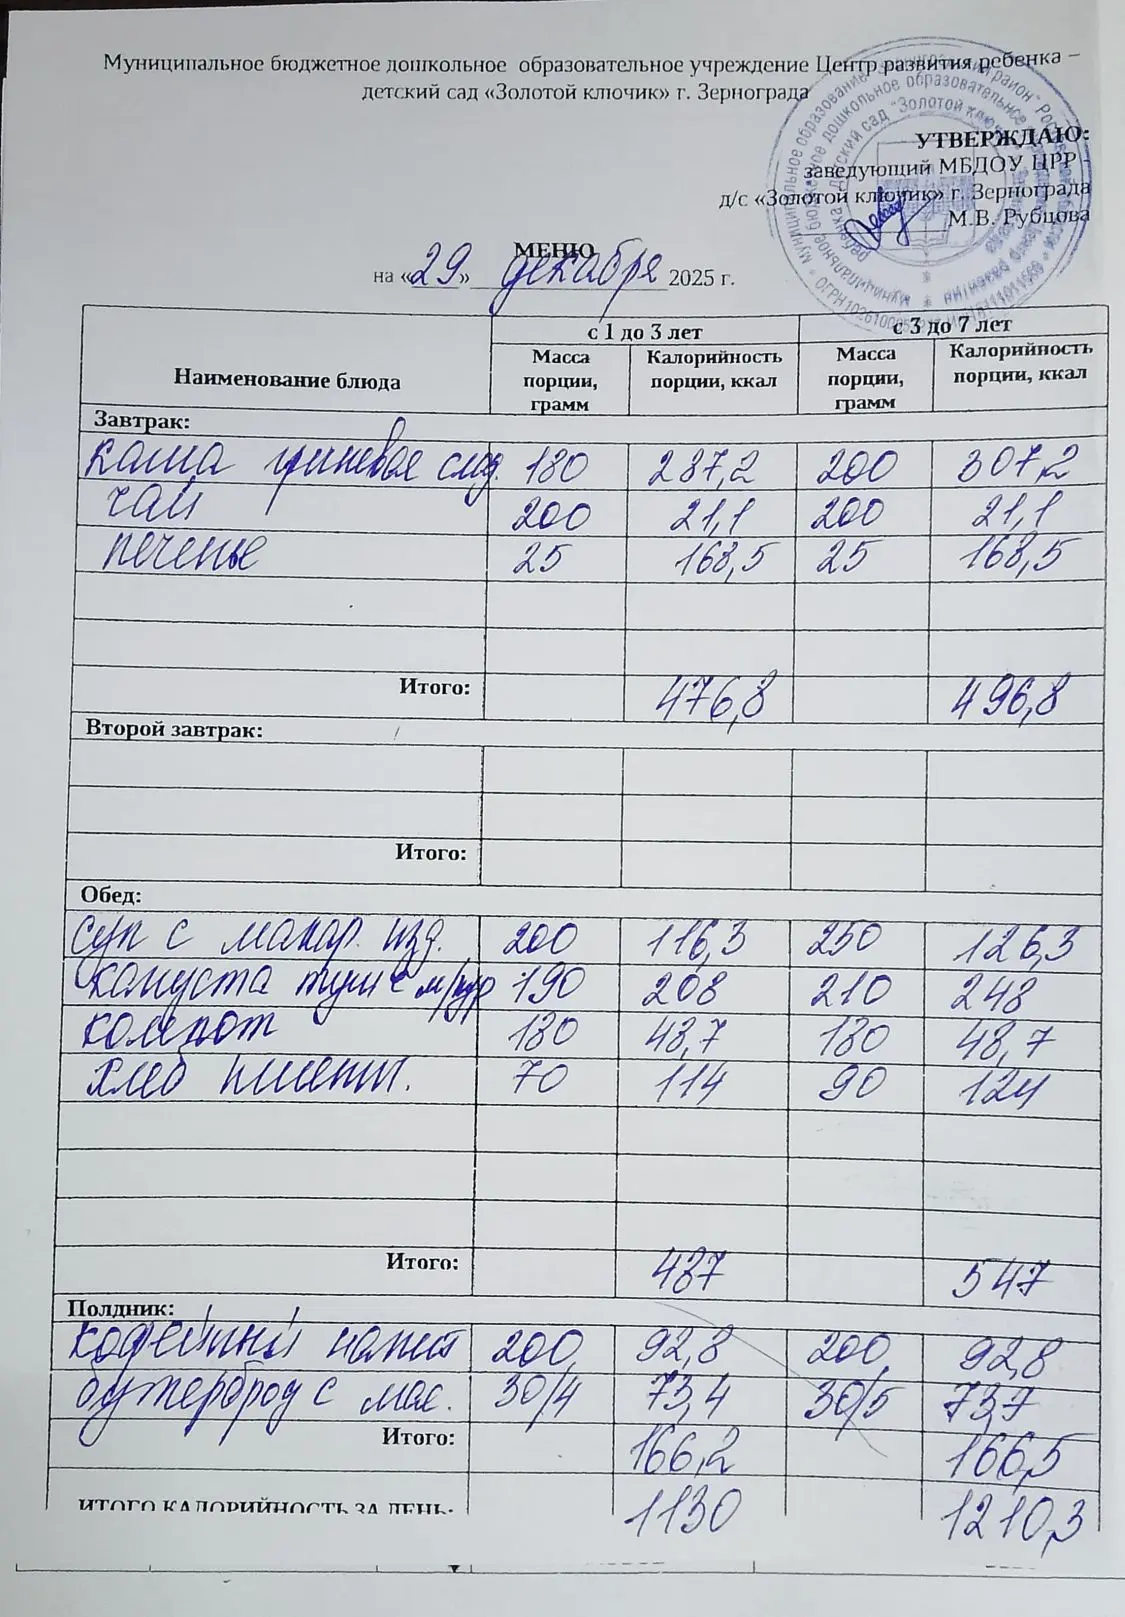 Муниципальное бюджетное дошкольное образовательное учреждение Центр развития ребенка –
детский сад «Золотой ключик» г. Зернограда
УТВЕРЖДАЮ:
заведующий МБДОУ ЦРР -
д/с «Золотой ключик» г. Зернограда
М.В. Рубцова
МЕНЮ
на «29» декабря 2025 г.
Наименование блюда
с 1 до 3 лет с 3 до 7 лет
Масса порции, грамм Калорийность порции, ккал Масса порции, грамм Калорийность порции, ккал
Завтрак:
каша гречневая 180 287,2 200 307,2
чай 200 21,1 200 21,1
печенье 25 168,5 25 168,5
Итого: 476,8 496,8
Второй завтрак:
Итого:
Обед:
суп с макар. изд. 200 116,3 250 126,3
капуста туш с м/кур 190 208 210 248
компот 180 48,7 180 48,7
хлеб пшенич. 70 114 90 124
Итого: 487 547
Полдник:
кофейный напит 200 92,8 200 92,8
бутерброд с мас. 30/4 73,4 30/5 73,7
Итого: 166,2 166,5
ИТОГО КАЛОРИЙНОСТЬ ЗА ДЕНЬ: 1130 1210,3